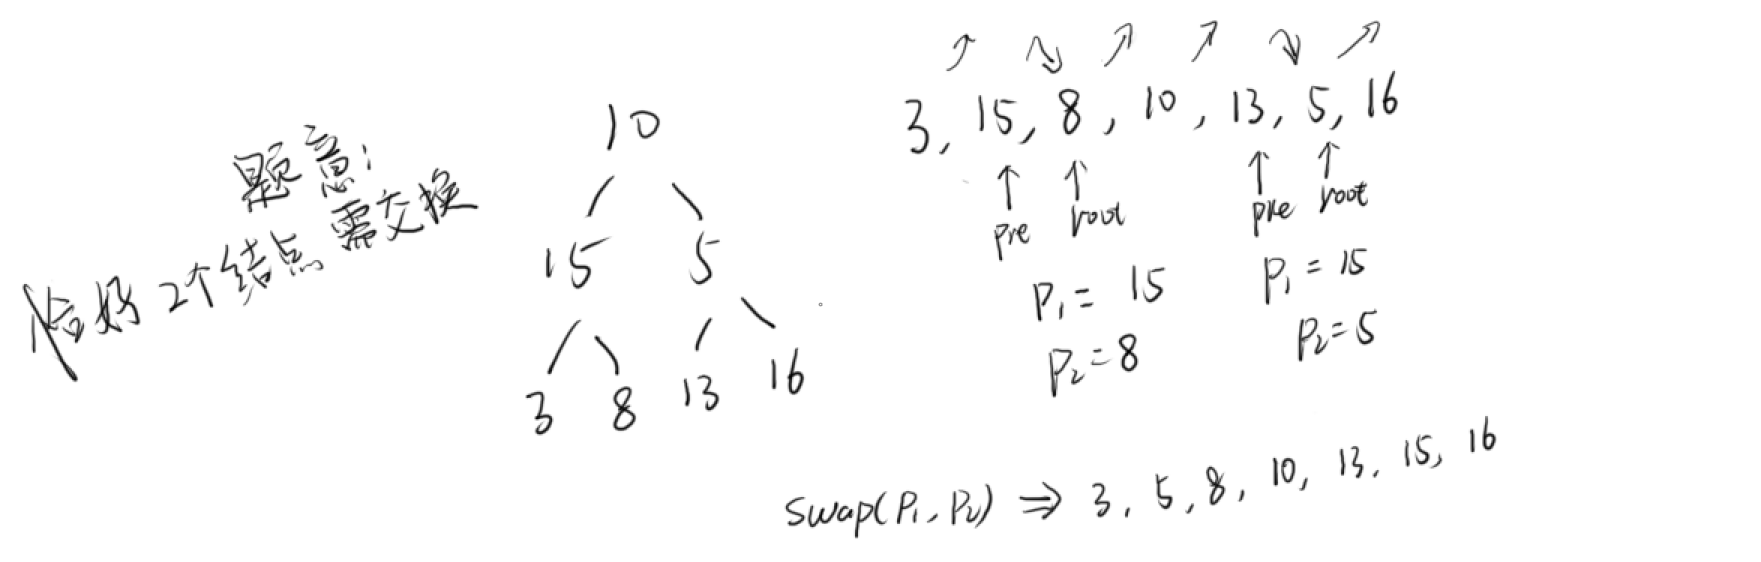 题意:
恰好2个结点需交换
10
15 5
3 8 13 16
3, 15, 8, 10, 13, 5, 16
pre root pre root
P₁ = 15 P₁ = 15
P₂ = 8 P₂ = 5
swap(P₁, P₂) ⇒ 3, 5, 8, 10, 13, 15, 16